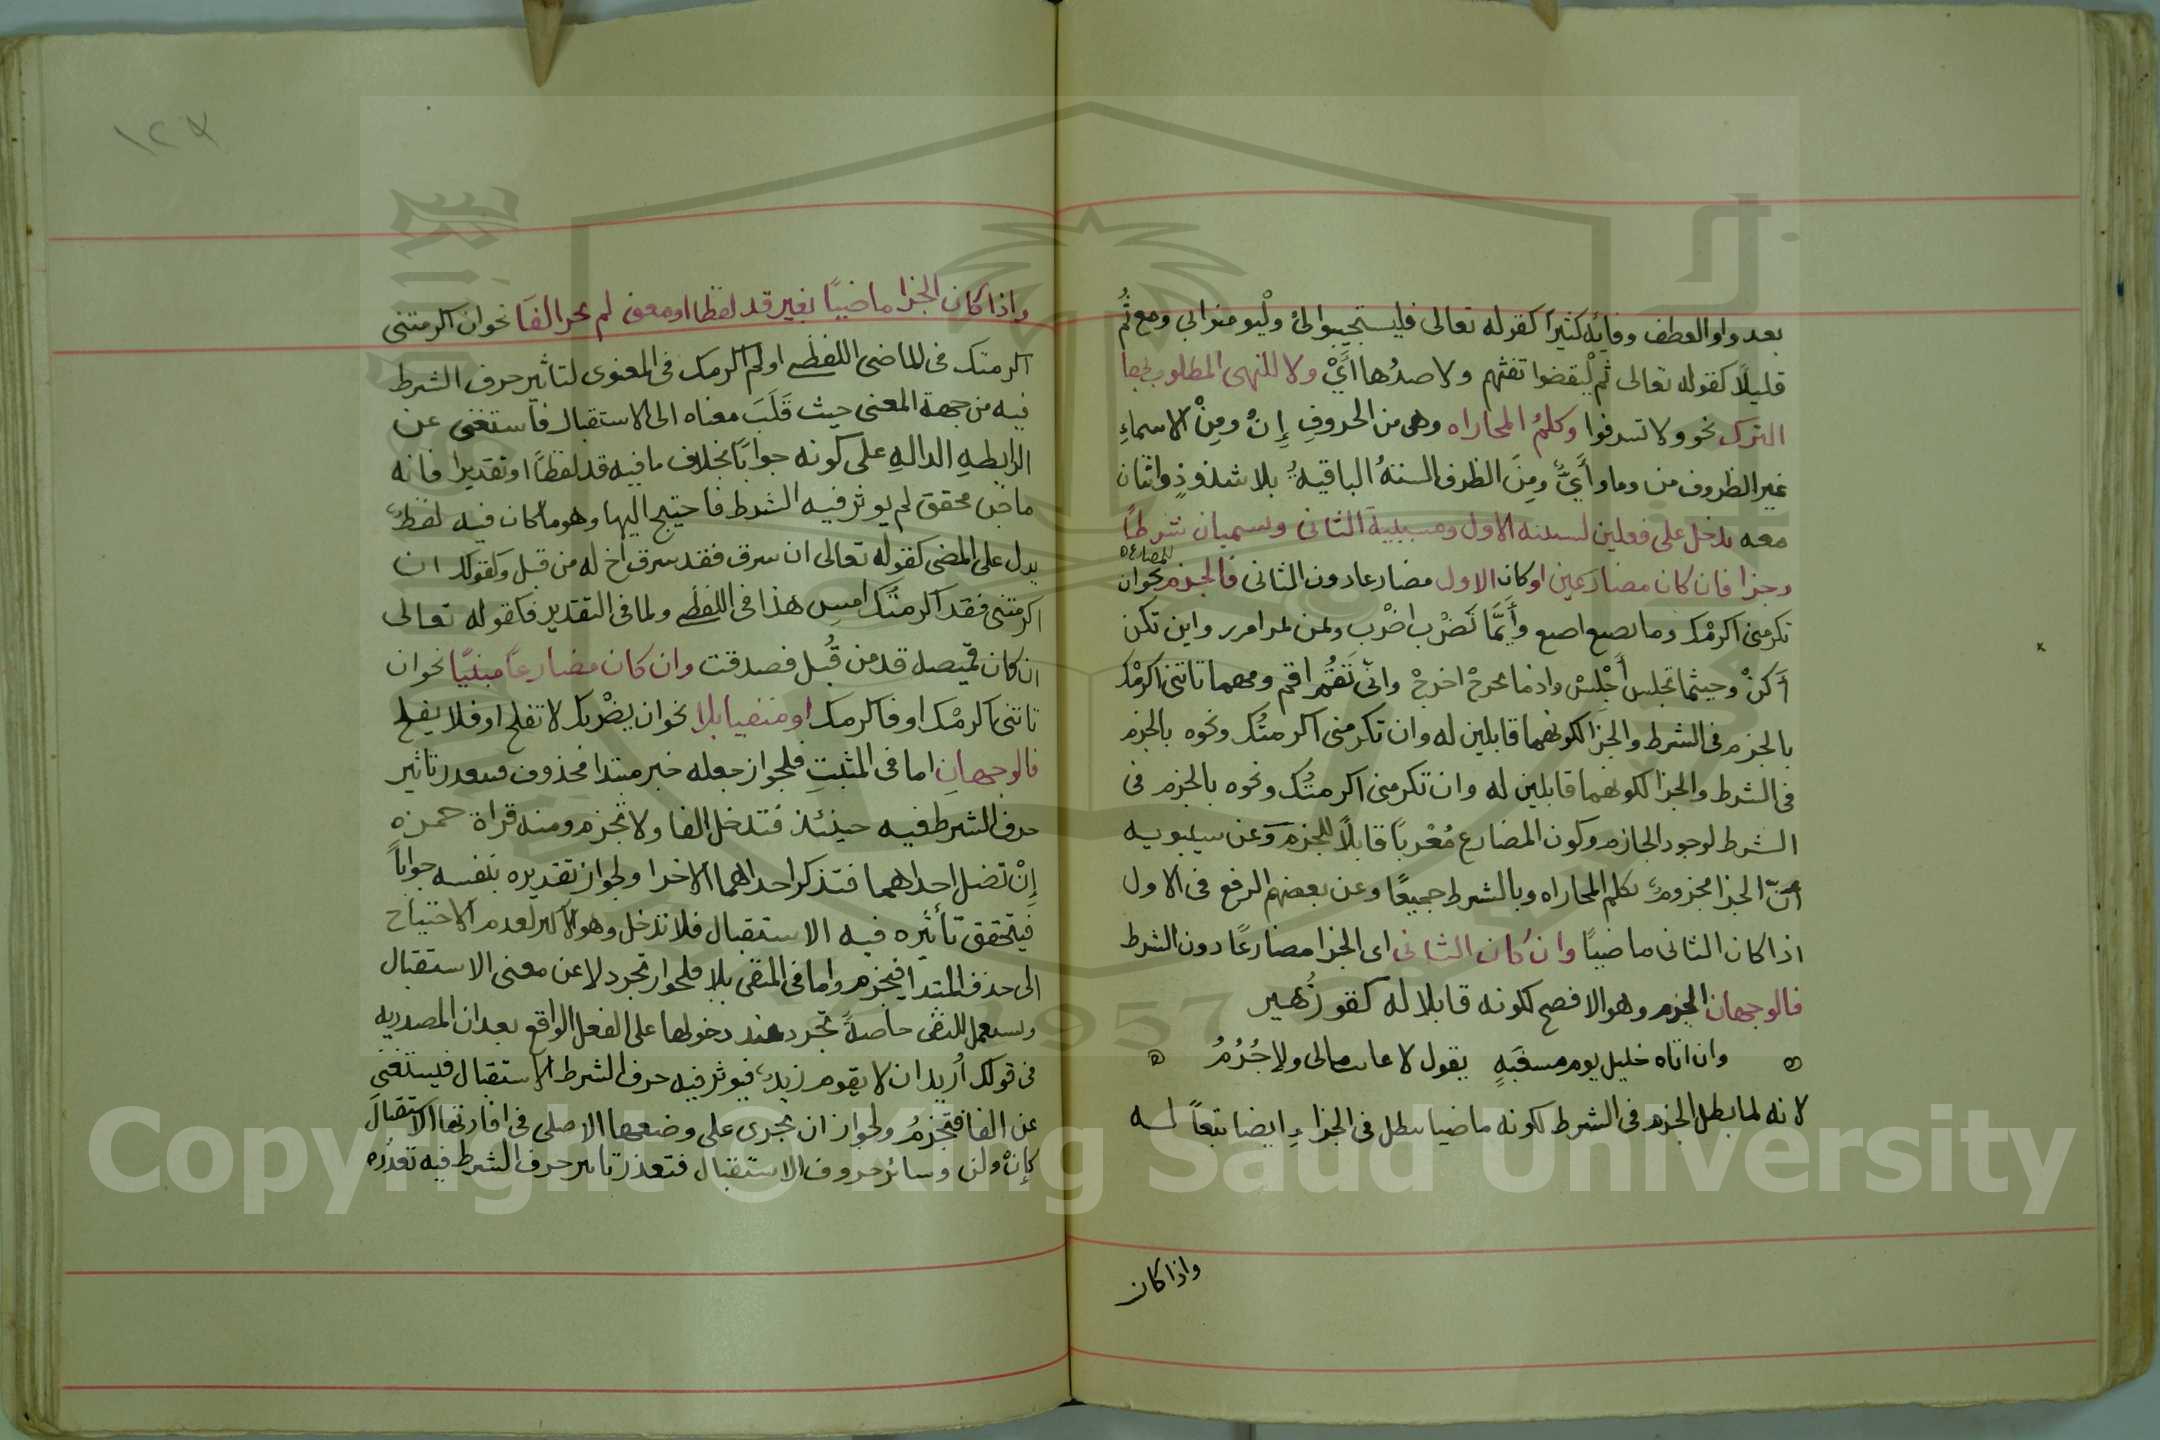 بعد واو العطف وفائه كثيرا كقوله تعالى فليستجيبوا لى وليومنوا بي ومع ثم
قليلا كقوله تعالى ثم ليقضوا تفثهم ولا صدها اي ولا للنهى المطلوب بها
الترك نحو ولا تسرفوا وكلم المجاراه وهى من الحروف إن ومن الاسماء
غير الظروف من وما وأي ومن الظرف الستة الباقية بلا شذوذ واثنان
معه تدخل على فعلين لسببية الاول ومسببية الثانى ويسميان شرطا
وجزا فان كان مضارعين او كان الاول مضارعا دون الثانى فالجزم للمضارع نحو ان
تكرمنى اكرمك وما تصنع اصنع وأيما تضرب اضرب ولمن تمرر امرر واين تكن
أكن وحيثما تجلس أجلس واذما تخرج اخرج وانى تقم اقم ومهما تاتنى اكرمك
بالجزم فى الشرط والجزا لكونهما قابلين له وان تكرمنى اكرمتك ونحوه بالجزم
فى الشرط والجزا لكونهما قابلين له وان تكرمنى اكرمتك ونحوه بالجزم فى
الشرط لوجود الجازم وكون المضارع معربا قابلا للجزم وعن سيبويه
أن الجزا مجزوم بكلم المجاراه وبالشرط جميعا وعن بعضهم الرفع فى الاول
اذا كان الثانى ماضيا وان كان الثانى اى الجزا مضارعا دون الشرط
فالوجهان الجزم وهو الافصح لكونه قابلا له كقو زهير
وان اتاه خليل يوم مسغبة يقول لا غائب مالى ولا حرم
لانه لما بطل الجزم فى الشرط لكونه ماضيا بطل فى الجزاء ايضا تبعا له
واذا كان
١٢٧
واذا كان الجزا ماضيا بغير قد لفظا او معنى لم يجز الفا نحو ان اكرمتنى
اكرمتك فى الماضى اللفظى او لم اكرمك فى المعنوى لتاثير حرف الشرط
فيه من جهة المعنى حيث قلب معناه الى الاستقبال فاستغنى عن
الرابطه الداله على كونه جوابا بخلاف ما فيه قد لفظا او تقديرا فانه
ماض محقق لم يوثر فيه الشرط فاحتيج اليها وهو ما كان فيه لفظ
يدل على المضى كقوله تعالى ان سرق فقد سرق اخ له من قبل وكقولك ان
اكرمتنى فقد اكرمتك امس هذا فى اللفظى ولما فى التقدير فكقوله تعالى
ان كان قميصه قد من قبل فصدقت وان كان مضارعا مثبتا نحو ان
تاتنى اكرمك او فاكرمك او منفيا بلا نحو ان يضربك لا تفلح او فلا يفلح
فالوجهان اما فى المثبت فلجواز جعله خبر مبتدا محذوف فيعدر تاثير
حرف الشرط فيه حينئذ فتدخل الفا ولا تجزم ومنه قراة حمزه
إن تضل احداهما فتذكر احداهما الاخرا ولجواز تقديره بنفسه جوابا
فيتحقق تأثيره فيه الاستقبال فلا تدخل وهو الاكثر لعدم الاحتياج
الى حذف المبتدا فيجزم واما فى المنفى بلا فلجواز تجرد لا عن معنى الاستقبال
وتستعمل للنفى خاصة تجرد عند دخولها على الفعل الواقع بعد ان المصدريه
فى قولك أريد ان لا يقوم زيد فيوثر فيه حرف الشرط الاستقبال فيستغنى
عن الفا فتجزم ولجواز ان تجرى على وضعها الاصلى فى افادتها الاستقبال
كإن ولن وسائر حروف الاستقبال فتعذر تاثير حرف الشرط فيه تعذره
Copyright © King Saud University
1957